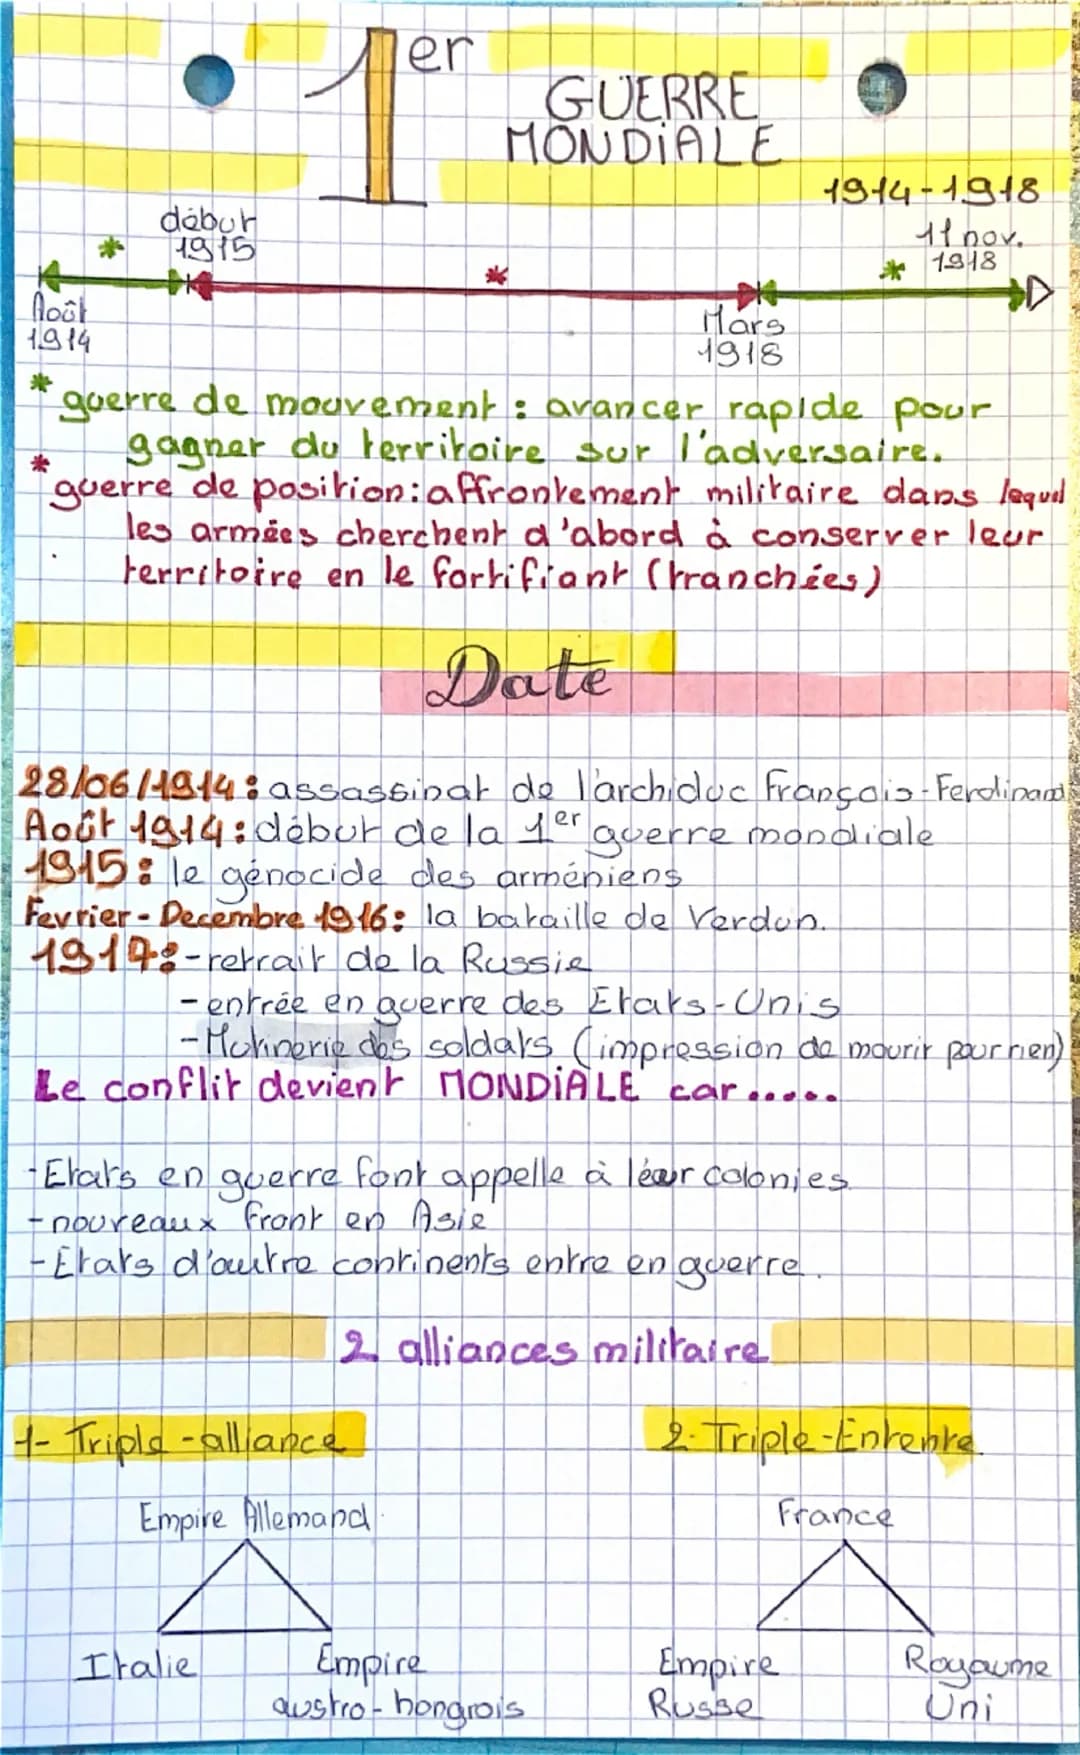 1er
GUERRE
MONDiALE
1914-1918
début
1915
11 nov.
1918
* * *
Août
1914
Mars
1918
* guerre de mouvement : avancer rapide pour
gagner du territoire sur l'adversaire.
* guerre de position : affrontement militaire dans lequel
les armées cherchent d'abord à conserver leur
territoire en le fortifiant (tranchées)
Date
28/06/1914 : assassinat de l'archiduc François-Ferdinand
Août 1914 : début de la 1er guerre mondiale
1915 : le génocide des arméniens
Fevrier - Decembre 1916 : la bataille de Verdun.
1917 : - retrait de la Russie
- entrée en guerre des Etats-Unis
- Mutinerie des soldats (impression de mourir pour rien)
Le conflit devient MONDiALE car.....
- Etats en guerre font appelle à leur colonies
- nouveaux front en Asie
- Etats d'autre continents entre en guerre.
2 alliances militaire
1- Triple-alliance
2- Triple-Entente
Empire Allemand
France
Italie
Empire
austro-hongrois
Empire
Russe
Royaume
Uni